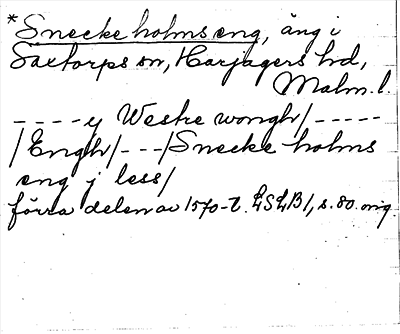 *Snecke holms eng, äng i
Saxtorps sn, Harjagers hd,
Malm. l.
- - - - y Westre wongh/- - - - -
/Engh/- - -/Snecke holms
eng j less/
förra delen av 1570-t. LSLB1, s. 80. orig.